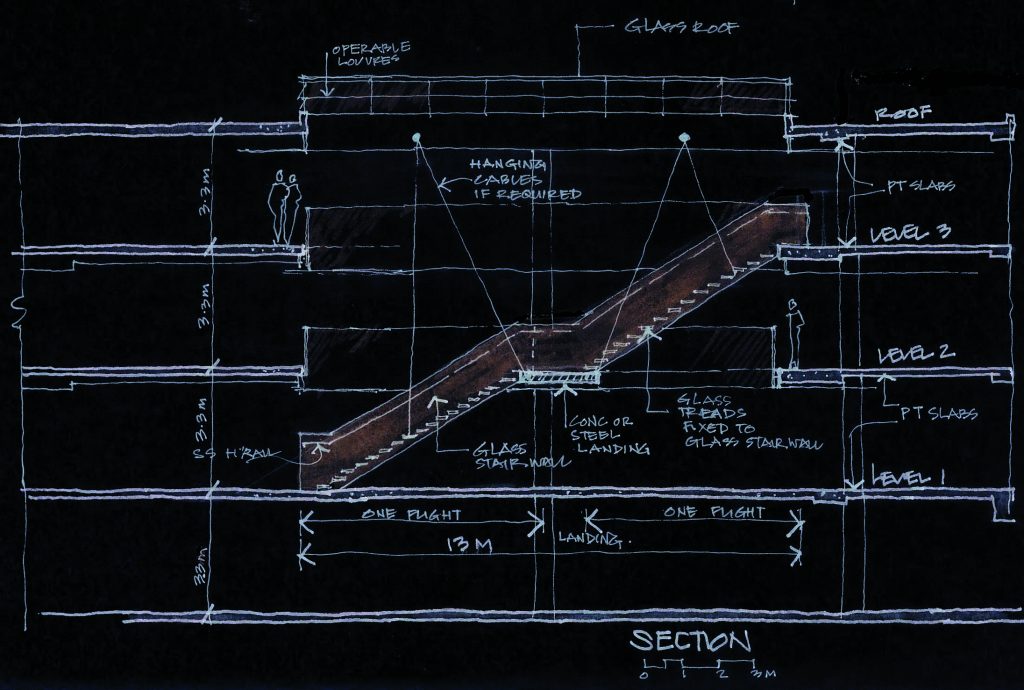 GLASS ROOF
OPERABLE
LOUVRES
ROOF
HANGING
CABLES
IF REQUIRED
PT SLABS
3.3M
LEVEL 3
3.3M
LEVEL 2
PT SLABS
3.3M
GLASS
TREADS
FIXED TO
GLASS STAIRWALL
CONC OR
STEEL
LANDING
SS H'RAIL
GLASS
STAIRWALL
LEVEL 1
ONE FLIGHT
ONE FLIGHT
LANDING.
13 M
3.3M
SECTION
0 1 2 3M